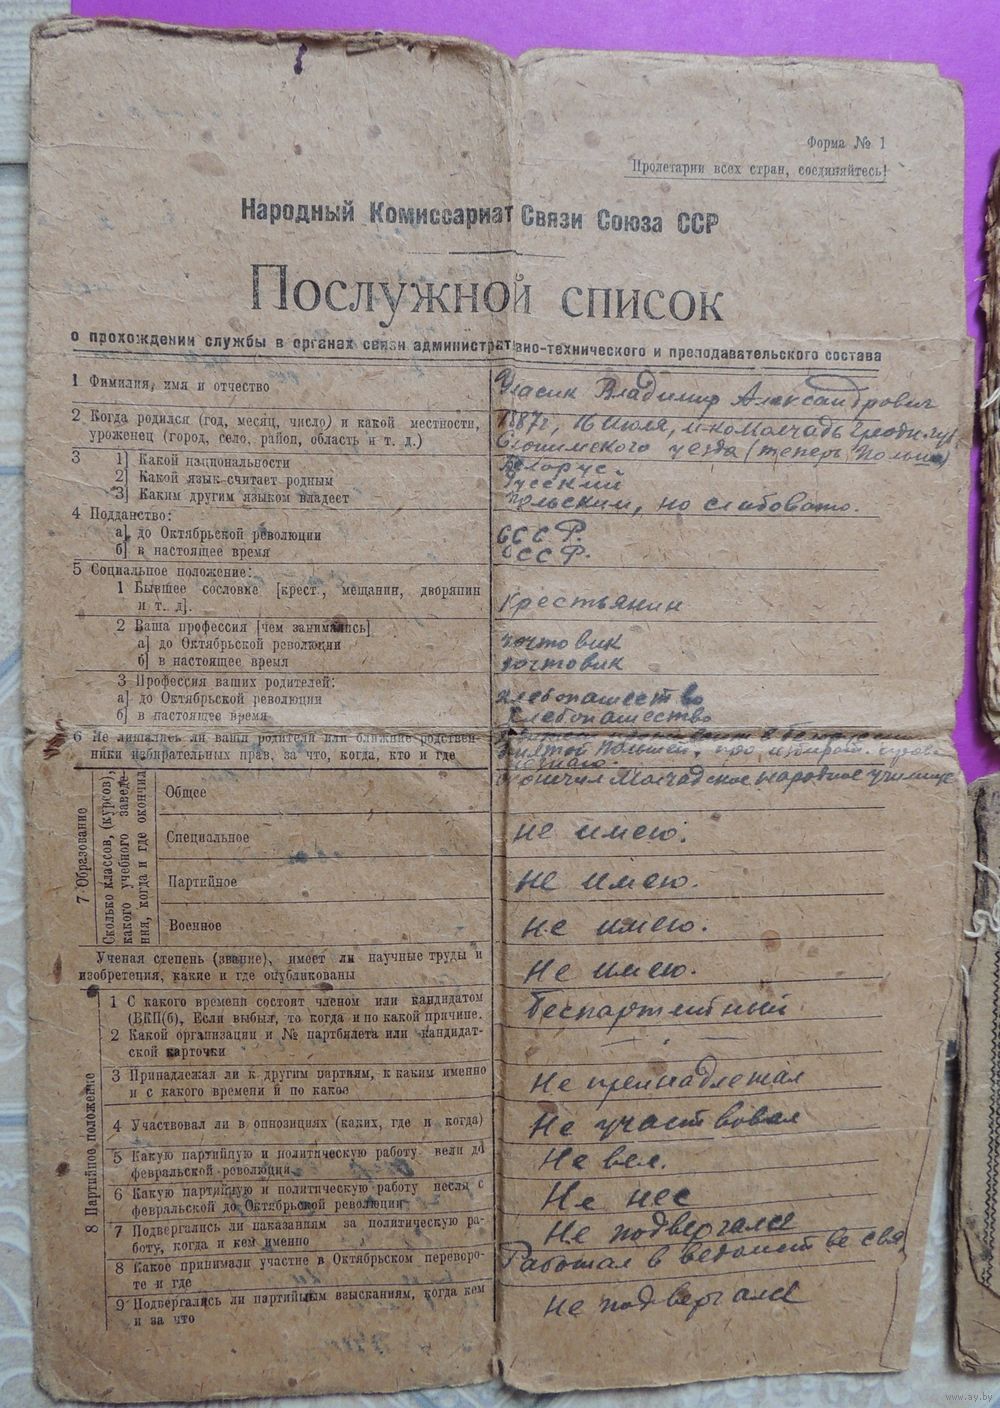 Форма № 1
Пролетарии всех стран, соединяйтесь!
Народный Комиссариат Связи Союза ССР
Послужной список
о прохождении службы в органах связи административно-технического и преподавательского состава
1 Фамилия, имя и отчество
Власик Владимир Александрович
2 Когда родился (год, месяц, число) и какой местности,
уроженец (город, село, район, область и т. д.)
1887г, 16 июля, Молчадь Гродн. губ
Слонимского уезда (теперь Польша)
3 1] Какой национальности
Белорус
2] Какой язык считает родным
Русский
3] Каким другим языком владеет
Польским, но слабовато.
4 Подданство:
а] до Октябрьской революции
СССР.
б] в настоящее время
СССР.
5 Социальное положение:
1 Бывшее сословие [крест., мещанин, дворянин
и т. д].
Крестьянин
2 Ваша профессия [чем занимались]
а] до Октябрьской революции
почтовик
б] в настоящее время
почтовик
3 Профессия ваших родителей:
а] до Октябрьской революции
хлебопашество
б] в настоящее время
хлебопашество
6 Не лишались ли ваши родители или ближние родствен-
ники избирательных прав, за что, когда, кто и где
в Белоруссии
занятой Польшей, про избират. права
не знаю.
7 Образование
Сколько классов, (курсов),
какого учебного заведе-
ния, когда и где окончил
Общее
Окончил Молчадское народное училище
Специальное
не имею.
Партийное
не имею.
Военное
не имею.
Ученая степень (звание), имеет ли научные труды и
изобретения, какие и где опубликованы
Не имею.
8 Партийное положение
1 С какого времени состоит членом или кандидатом
(ВКП(б), Если выбыл, то когда и по какой причине.
беспартейный
2 Какой организации и № партбилета или кандидат-
ской карточки
3 Принадлежал ли к другим партиям, к каким именно
и с какого времени и по какое
Не пренадлежал
4 Участвовал ли в оппозициях (каких, где и когда)
Не участвовал
5 Какую партийную и политическую работу вели до
февральской революции
Не вел.
6 Какую партийную и политическую работу несли с
февральской до Октябрьской революции
Не нес
7 Подвергались ли наказаниям за политическую ра-
боту, когда и кем именно
Не подвергался
8 Какое принимали участие в Октябрьском переворо-
те и где
Работал в ведомстве свя
9 Подвергались ли партийным взысканиям, когда кем
и за что
Не подвергался
www.ay.by